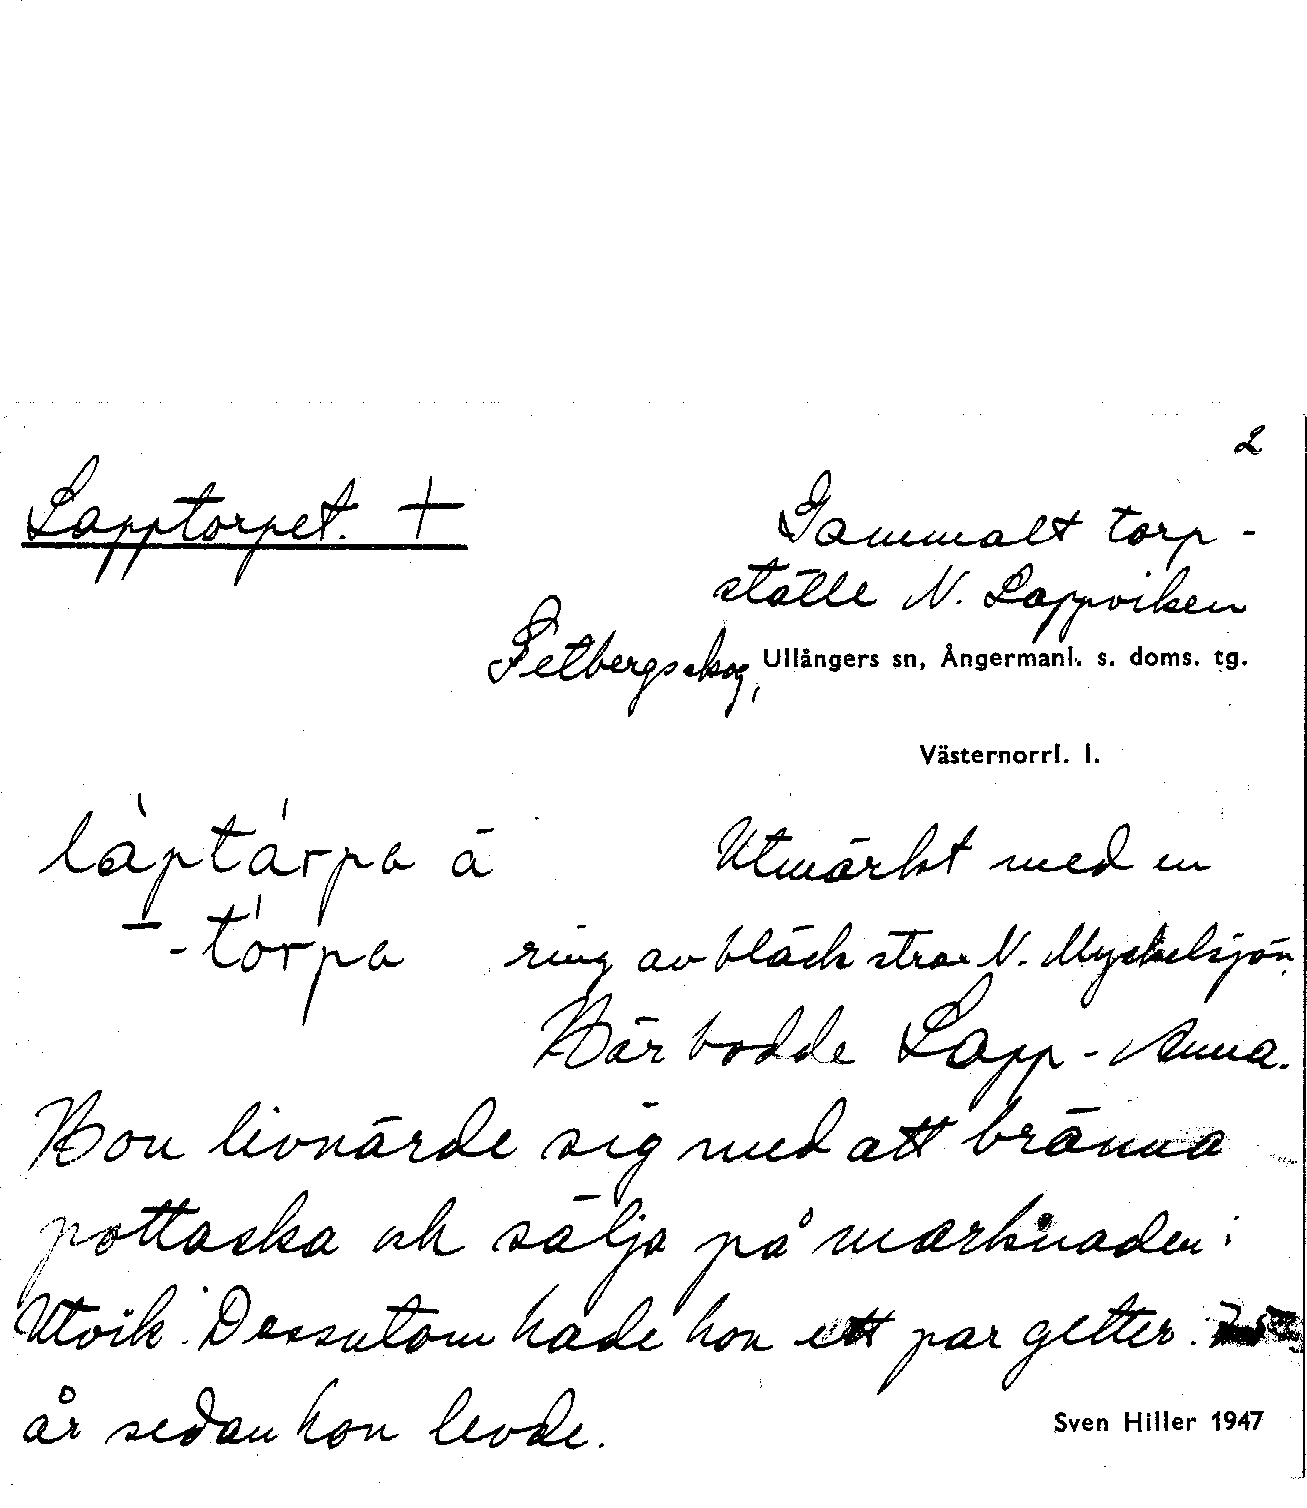 2
Lapptorpet. +
Gammalt torp-
ställe N. Lappviken
Fetbergsskog, Ullångers sn, Ångermanl. s. doms. tg.
Västernorrl. l.
làptárpa ā
– -tórpa
Utmärkt med en
ring av bläck strax N. Myckelsjön.
Här bodde Lapp-Anna.
Hon livnärde sig med att bränna
pottaska och sälja på marknaden i
Utvik. Dessutom hade hon ett par getter.
år sedan hon levde.
Sven Hiller 1947